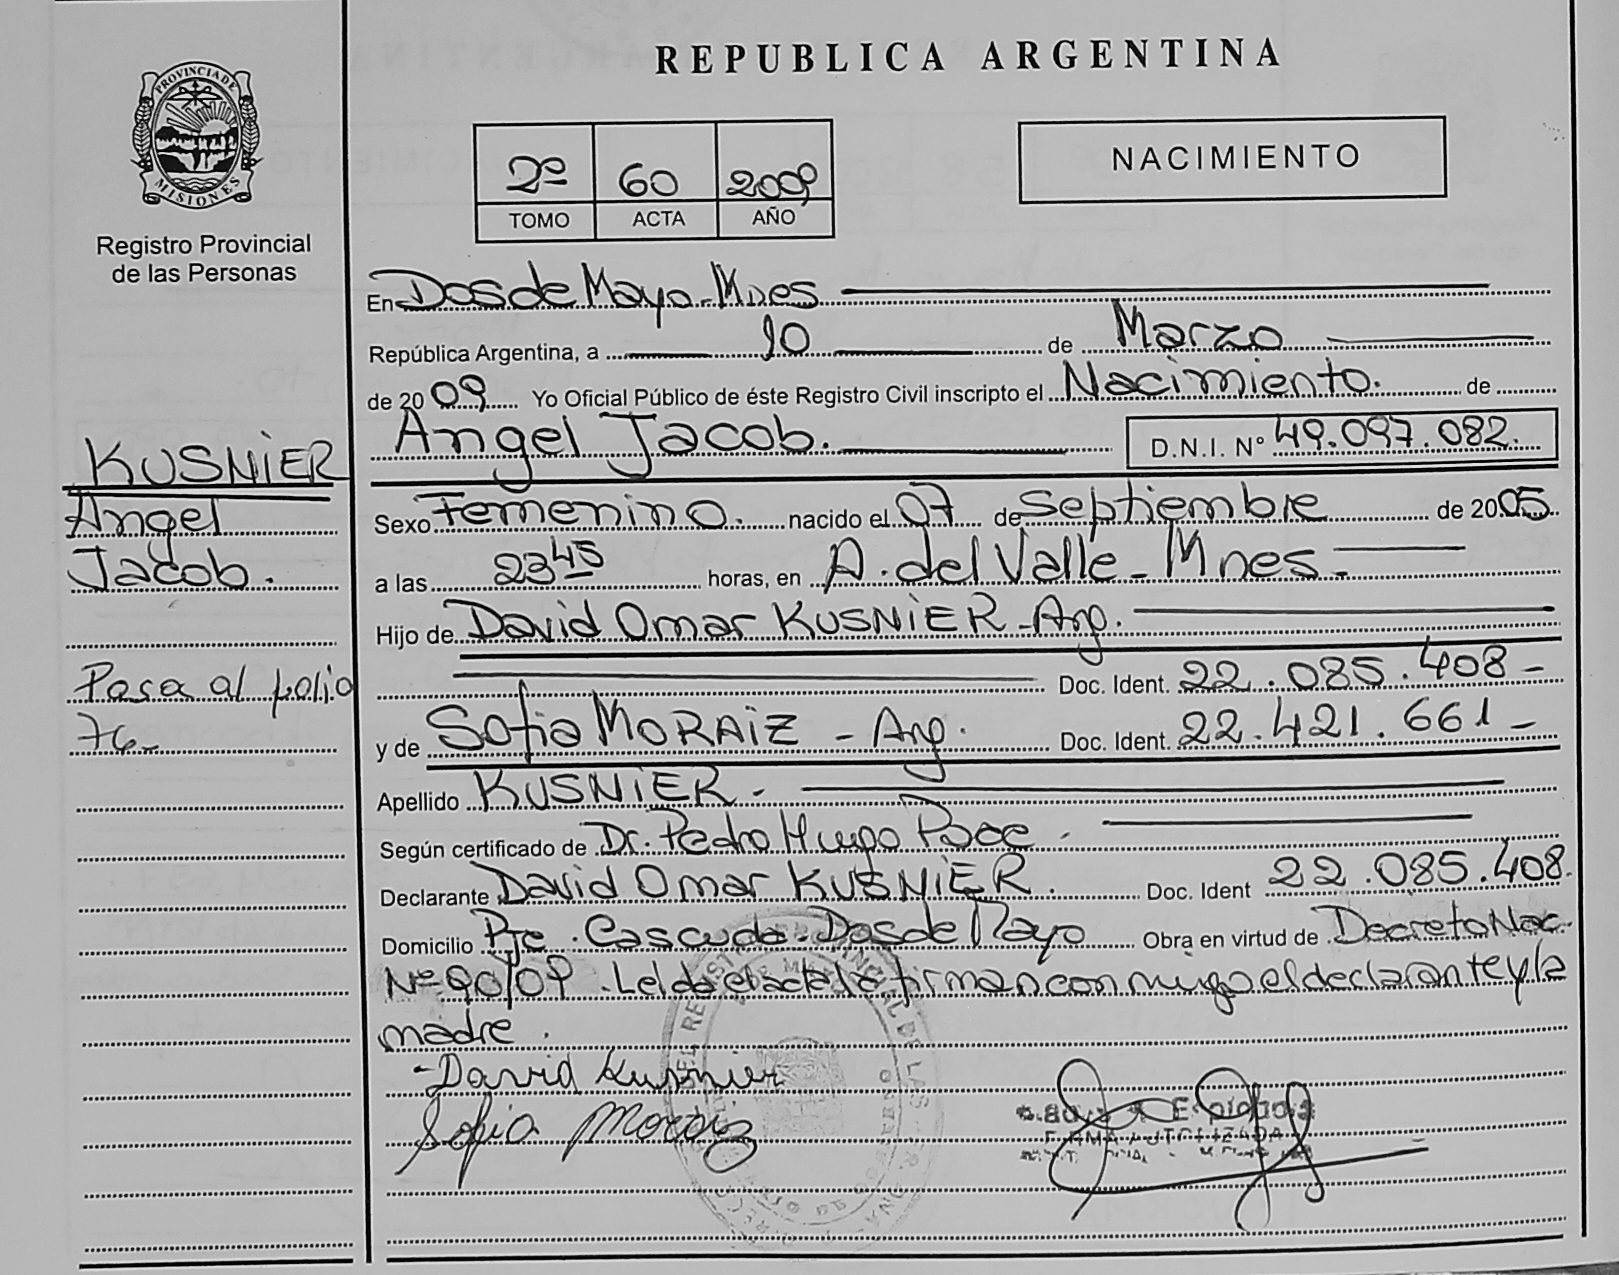 REPUBLICA ARGENTINA
PROVINCIA DE
MISIONES
Registro Provincial
de las Personas
2º 60 2009
TOMO ACTA AÑO
NACIMIENTO
En Dos de Mayo - Mnes
República Argentina, a 10 de Marzo
de 2009 Yo Oficial Público de éste Registro Civil inscripto el Nacimiento. de
Angel Jacob. D.N.I. Nº 49.097.082.
Sexo Femenino. nacido el 07 de Septiembre de 2005
a las 23 45 horas, en A. del Valle - Mnes -
Hijo de David Omar KUSNIER - Arg.
Doc. Ident. 22.085.408 -
y de Sofia MORAIZ - Arg. Doc. Ident. 22.421.661 -
Apellido KUSNIER. -
Según certificado de Dr. Pedro Hugo
Declarante David Omar KUSNIER. Doc. Ident 22.085.408.
Domicilio Pje. Cascuda - Dos de Mayo Obra en virtud de Decreto Nac.
Nº 90/09. Leida el acta la firman conmigo el declarante y la
madre.
- David Kusnier
Sofia Moraiz
KUSNIER
Angel
Jacob.
Pasa al folio
76-